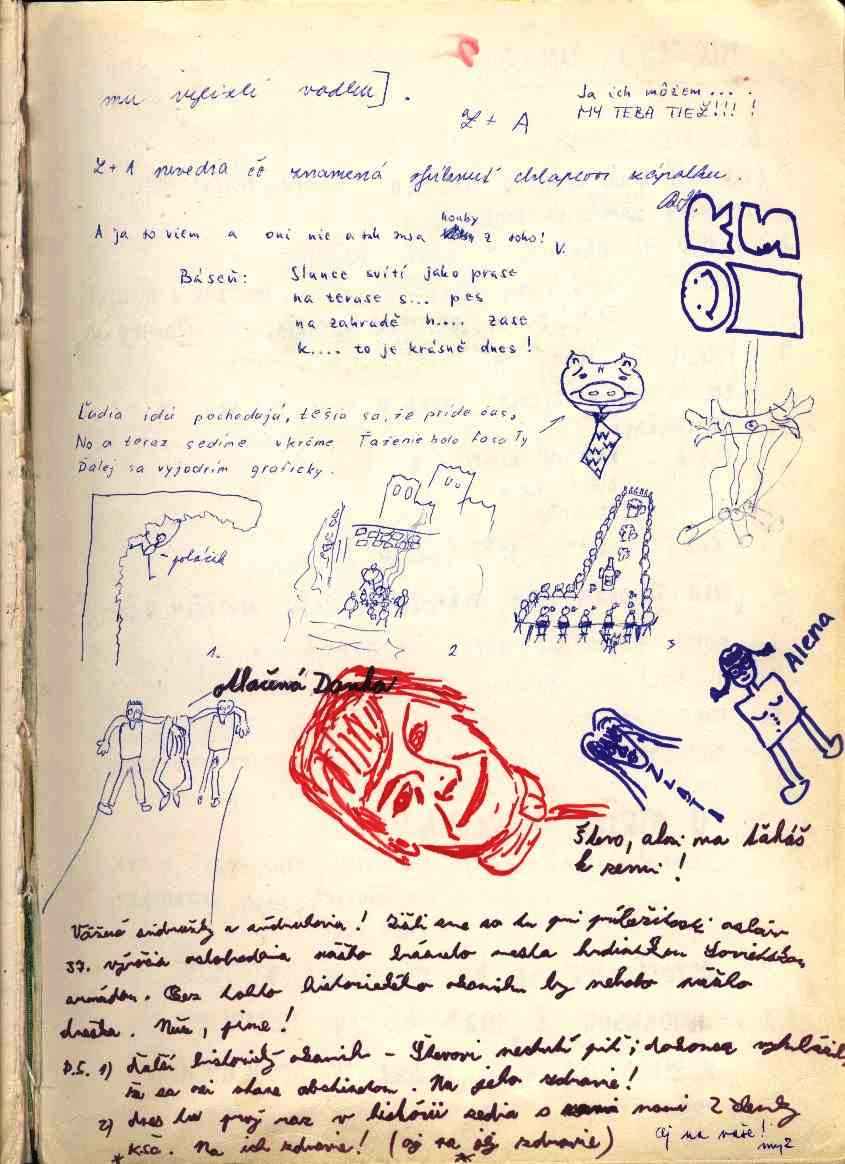 mu vylízli vodku].
Ja ich môžem....
MY TEBA TIEŽ!!! !
Z + A
Z + A nevedia čo znamená sfúknuť chlapcovi zápalku.
A ja to viem a oni nie a tak majú houby z toho! V.
Báseň: Slunce svítí jako prase
na terase s... pes
na zahradě h.... zase
k.... to je krásně dnes!
Ľudia idú pochodujú, tešia sa, že príde čas,
No a teraz sedíme v krčme
Ďalej sa vyjadrím graficky.
poláčik
1. 2 3
Mačená Danka
Alena
ZLATI
Števo, ako ma ťaháš
k zemi!
Vážené súdružky a súdruhovia! Zišli sme sa tu pri príležitosti osláv
37. výročia oslobodenia nášho mesta hrdinskou Sovietskou
armádou. Bez tohto historického okamihu by nebolo nášho
dneška. Nuž, pime!
P.S. 1) ďalší historický okamih - Števovi nechutí piť; dokonca vyhlásil,
že sa asi stane abstinentom. Na jeho zdravie!
2) dnes tu prvý raz v histórii sedia s nami 2 členky
* KSČ. Na ich zdravie! (aj na * jej zdravie)
Aj na vaše!
my 2